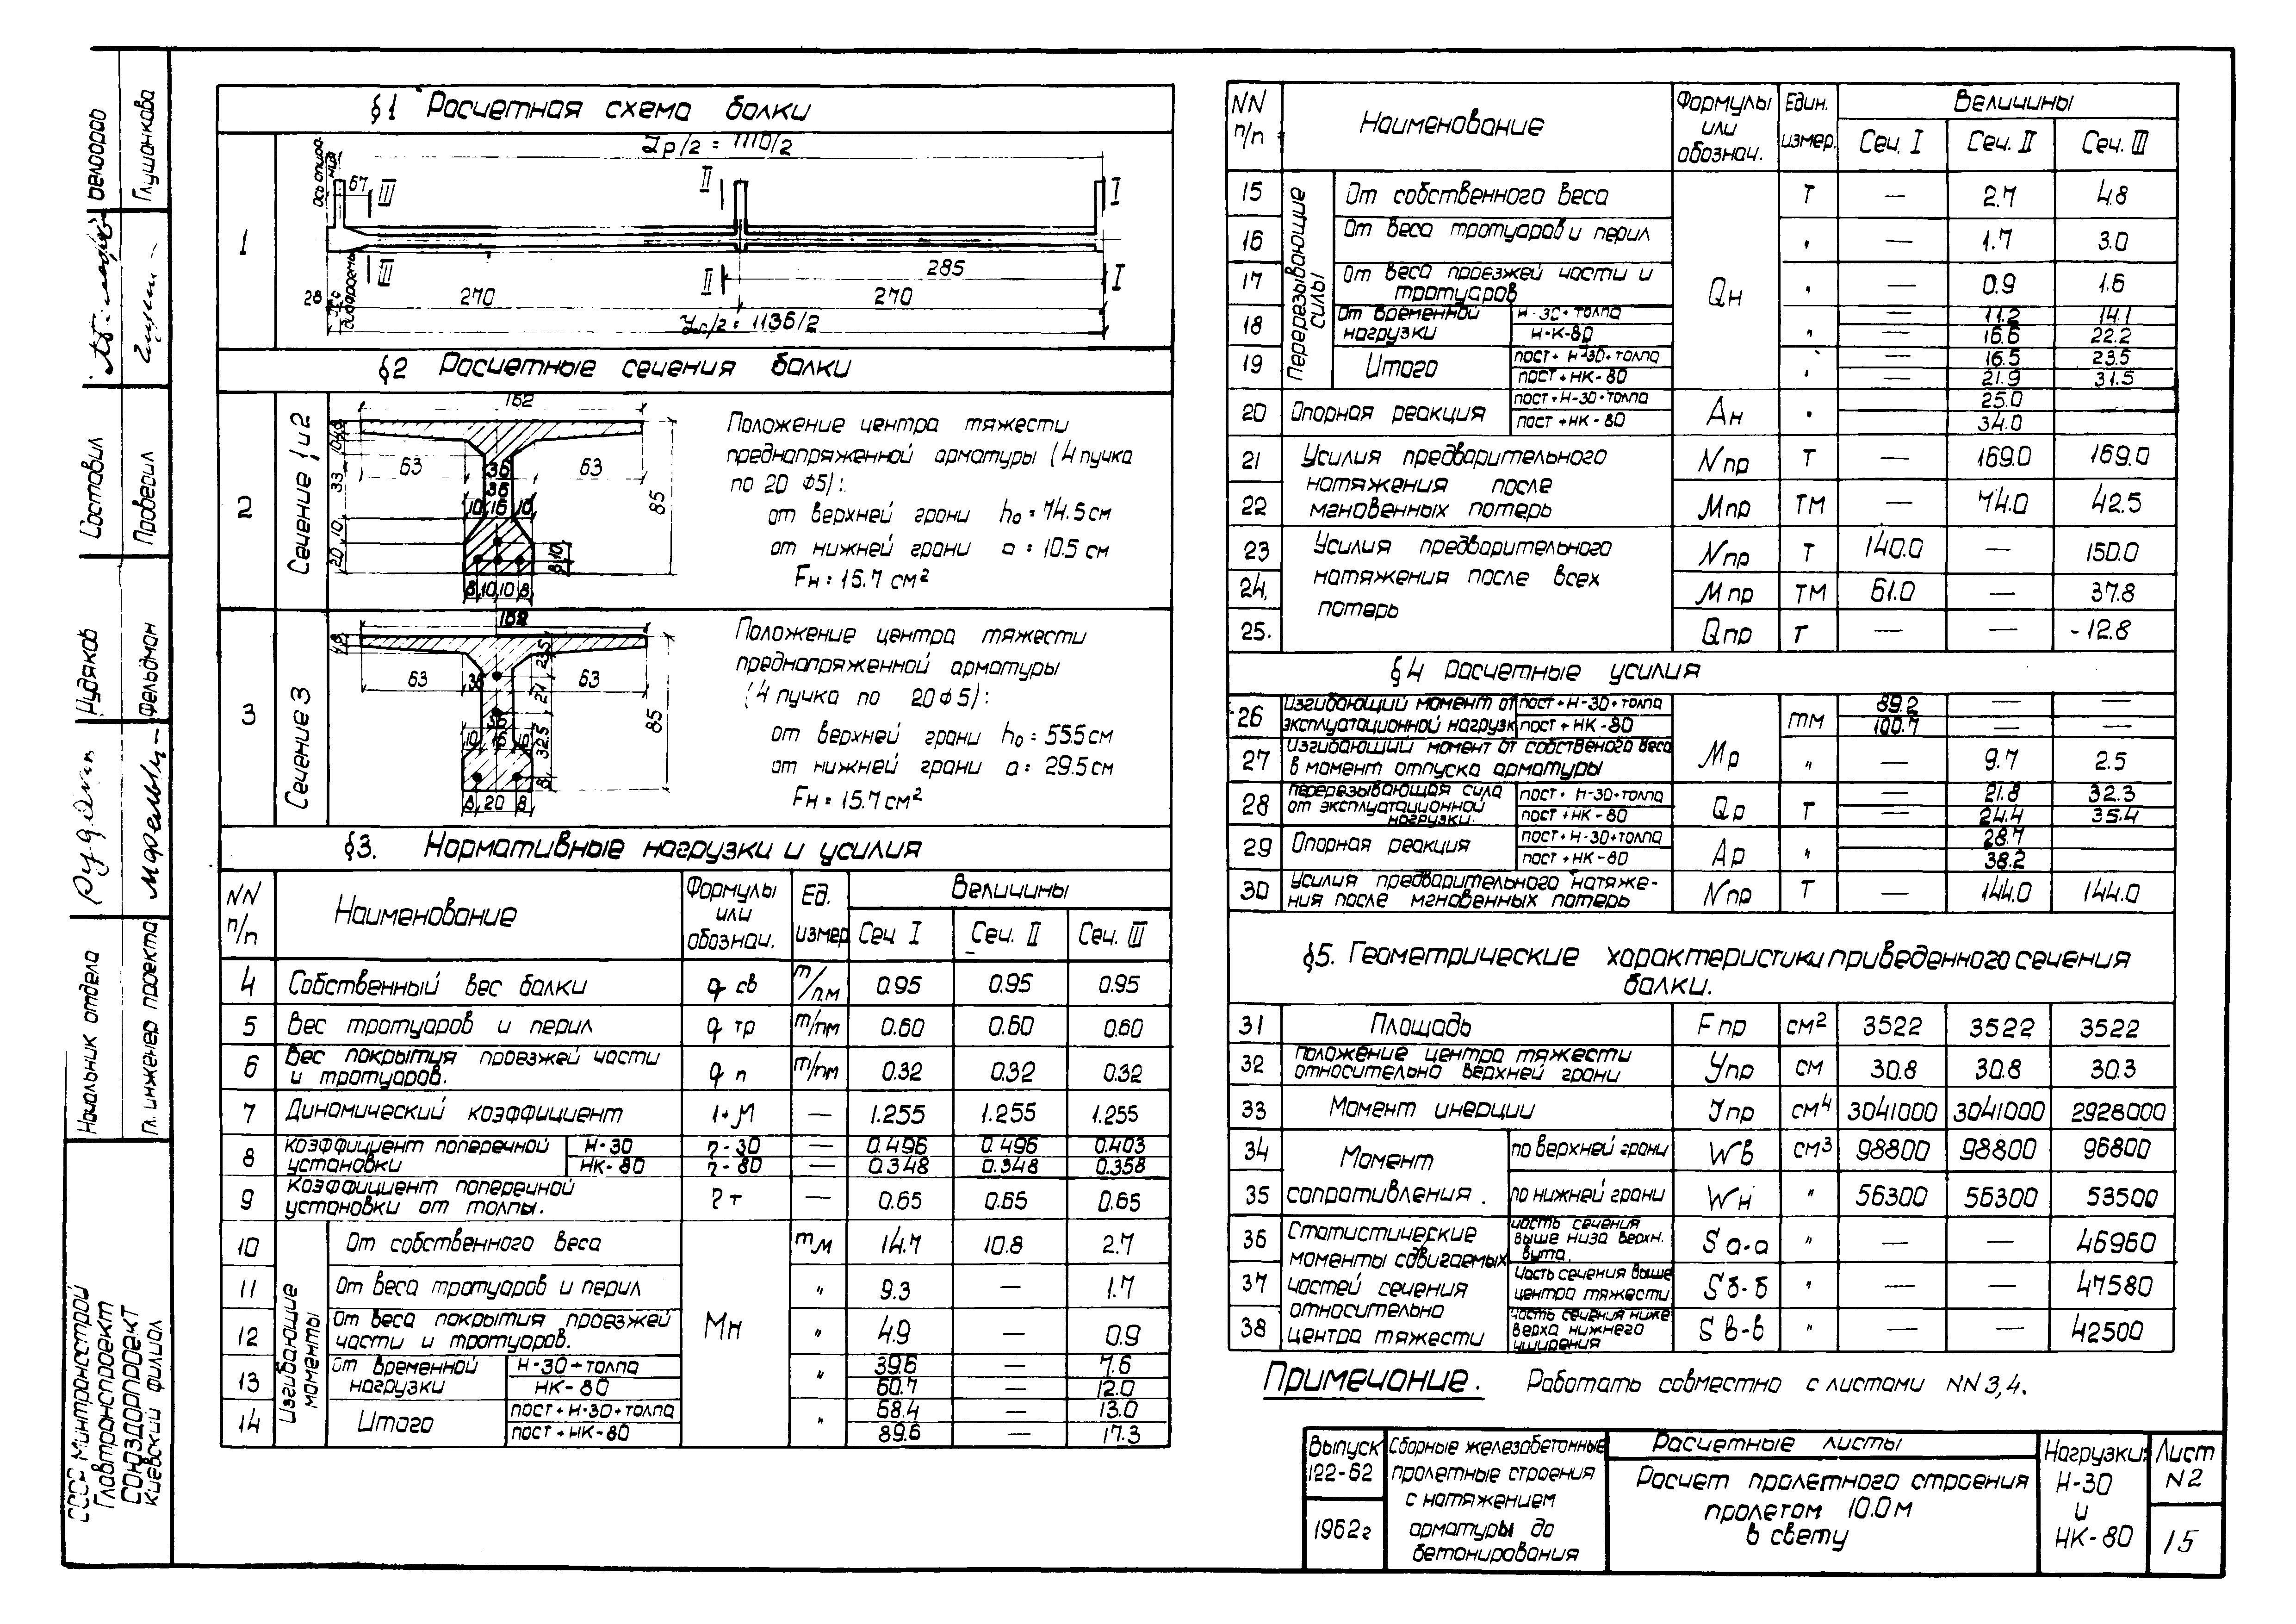 §1 Расчетная схема балки
1
Lр/2 = 1110/2
ось опира
ния
67
III
II
I
285
III
II
I
28
диафрагмы
270
270
Lп/2 = 1136/2
§2 Расчетные сечения балки
2
Сечение 1 и 2
162
63
36
63
36
10 16 10
33
10
20
85
8 10 10 8
Положение центра тяжести
преднапряженной арматуры (4 пучка
по 20 ф5):
от верхней грани h₀ = 74.5 см
от нижней грани a = 10.5 см
Fн = 15.7 см²
3
Сечение 3
182
63
36
63
23.5
21
32.5
8
36
10 16 10
85
8 20 8
Положение центра тяжести
преднапряженной арматуры
(4 пучка по 20ф5):
от верхней грани h₀ = 55.5 см
от нижней грани a = 29.5 см
Fн = 15.7 см²
§3. Нормативные нагрузки и усилия
NN п/п Наименование Формулы или обознач. Ед. измер Величины
Сеч I Сеч. II Сеч. III
4 Собственный вес балки q св т/п.м 0.95 0.95 0.95
5 Вес тротуаров и перил q тр т/пм 0.60 0.60 0.60
6 Вес покрытия проезжей части и тротуаров. q п т/пм 0.32 0.32 0.32
7 Динамический коэффициент 1+М — 1.255 1.255 1.255
8 Коэффициент поперечной установки Н-30 η-30 — 0.496 0.496 0.403
НК-80 η-80 — 0.348 0.348 0.358
9 Коэффициент поперечной установки от толпы. η т — 0.65 0.65 0.65
Изгибающие моменты Мн
10 От собственного веса тм 14.7 10.8 2.7
11 От веса тротуаров и перил " 9.3 — 1.7
12 От веса покрытия проезжей части и тротуаров. " 4.9 — 0.9
13 От временной нагрузки Н-30+толпа " 39.6 — 7.6
НК-80 60.7 — 12.0
14 Итого пост+Н-30+толпа " 68.4 — 13.0
пост+НК-80 89.6 — 17.3
NN п/п Наименование Формулы или обознач. Един. измер. Величины
Сеч. I Сеч. II Сеч. III
Перерезывающие силы Qн
15 От собственного веса т — 2.7 4.8
16 От веса тротуаров и перил " — 1.7 3.0
17 От веса проезжей части и тротуаров " — 0.9 1.6
18 От временной нагрузки Н-30+толпа — 11.2 14.1
Н-К-80 " — 16.6 22.2
19 Итого пост+Н-30+толпа " — 16.5 23.5
пост+НК-80 " — 21.9 31.5
20 Опорная реакция пост+Н-30+толпа Ан " 25.0
пост+НК-80 34.0
21 Усилия предварительного Nпр т — 169.0 169.0
22 натяжения после мгновенных потерь Мпр тм — 74.0 42.5
23 Усилия предварительного Nпр т 140.0 — 150.0
24. натяжения после всех Мпр тм 61.0 — 37.8
25. потерь Qпр т — — -12.8
§4 Расчетные усилия
26 Изгибающий момент от эксплуатационной нагрузк пост+Н-30+толпа Мр тм 89.2 — —
пост+НК-80 100.7 — —
27 Изгибающий момент от собственого веса в момент отпуска арматуры " — 9.7 2.5
28 перерезывающая сила от эксплуатационной нагрузки. пост+Н-30+толпа Qр т — 21.8 32.3
пост+НК-80 — 24.4 35.4
29 Опорная реакция пост+Н-30+толпа Ар " 28.7
пост+НК-80 38.2
30 Усилия предварительного натяже-
ния после мгновенных потерь Nпр т — 144.0 144.0
§5. Геометрические характеристики приведенного сечения
балки.
31 Площадь Fпр см² 3522 3522 3522
32 положение центра тяжести относительно верхней грани Упр см 30.8 30.8 30.3
33 Момент инерции Jпр см⁴ 3041000 3041000 2928000
34 Момент по верхней грани Wв см³ 98800 98800 96800
35 сопротивления. по нижней грани Wн " 56300 56300 53500
36 Статистические часть сечения выше низа верхн. вута. Sа-а " — — 46960
моменты сдвигаемых
37 частей сечения часть сечения выше центра тяжести Sб-б " — — 47580
относительно
38 центра тяжести часть сечения ниже верха нижнего уширения Sв-в " — — 42500
Примечание. Работать совместно с листами NN 3, 4.
Выпуск
122-62
1962г
Сборные железобетонные
пролетные строения
с натяжением
арматуры до
бетонирования
Расчетные листы
Расчет пролетного строения
пролетом 10.0м
в свету
Нагрузки:
Н-30
и
НК-80
Лист
N2
15
Глушанкова
Составил
Проверил
Рудяков
Фельдман
Начальник отдела
Гл. инженер проекта
СССР Минтрансстрой
Главтранспроект
СОЮЗДОРПРОЕКТ
Киевский филиал